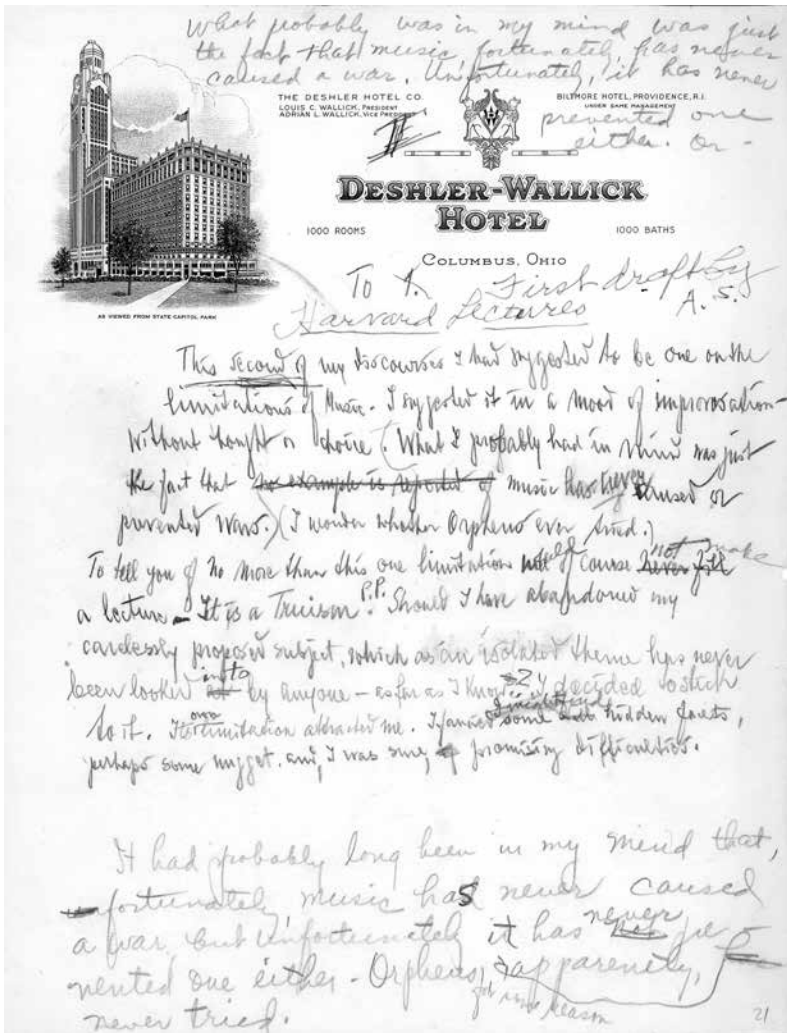 What probably was in my mind was just
the fact that music fortunately has never
caused a war. Unfortunately, it has never
prevented one
either. Or –
THE DESHLER HOTEL CO.
LOUIS C. WALLICK, PRESIDENT
ADRIAN L. WALLICK, VICE PRESIDENT
BILTMORE HOTEL, PROVIDENCE, R.I.
UNDER SAME MANAGEMENT
DESHLER-WALLICK
HOTEL
1000 ROOMS
1000 BATHS
COLUMBUS, OHIO
AS VIEWED FROM STATE CAPITOL PARK
To
First draft by
A. S.
Harvard Lectures
This second of my discourses I had suggested to be one on the
limitations of Music. I suggested it in a mood of improvosation –
without thought or choice. (What I probably had in mind was just
the fact that no example is reported of music has never caused or
prevented wars.) (I wonder whether Orpheus ever tried.)
To tell you of no more than this one limitation will of course not make
a lecture – It is a Truism. P.P. Should I have abandoned my
carelessly proposed subject, which as an isolated theme has never
been looked into by anyone – as far as I know – I decided to stick
to it. Its own limitation attracted me. I fancied some hidden facets,
perhaps some nugget, and, I was sure, promising difficulties.
It had probably long been in my mind that,
fortunately, music has never caused
a war, but unfortunately it has never pre-
vented one either – Orpheus, apparently,
for some reason
never tried.
21